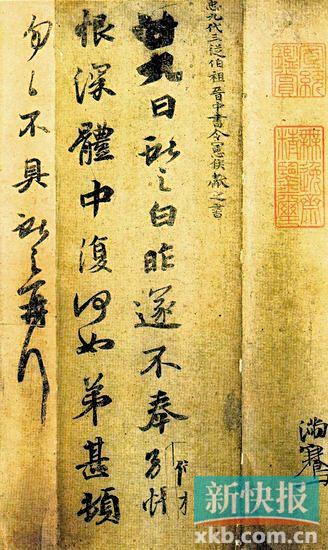 滿騫
臣九代三從伯祖晉中書令憲侯獻之書
廿九日獻之白昨遂不奉別悵
恨深體中復何如弟甚頓
勿勿不具獻之再拜
新快报
xkb.com.cn